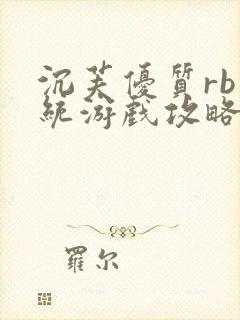 沉芙優質rb
統游戲攻略
羅尔